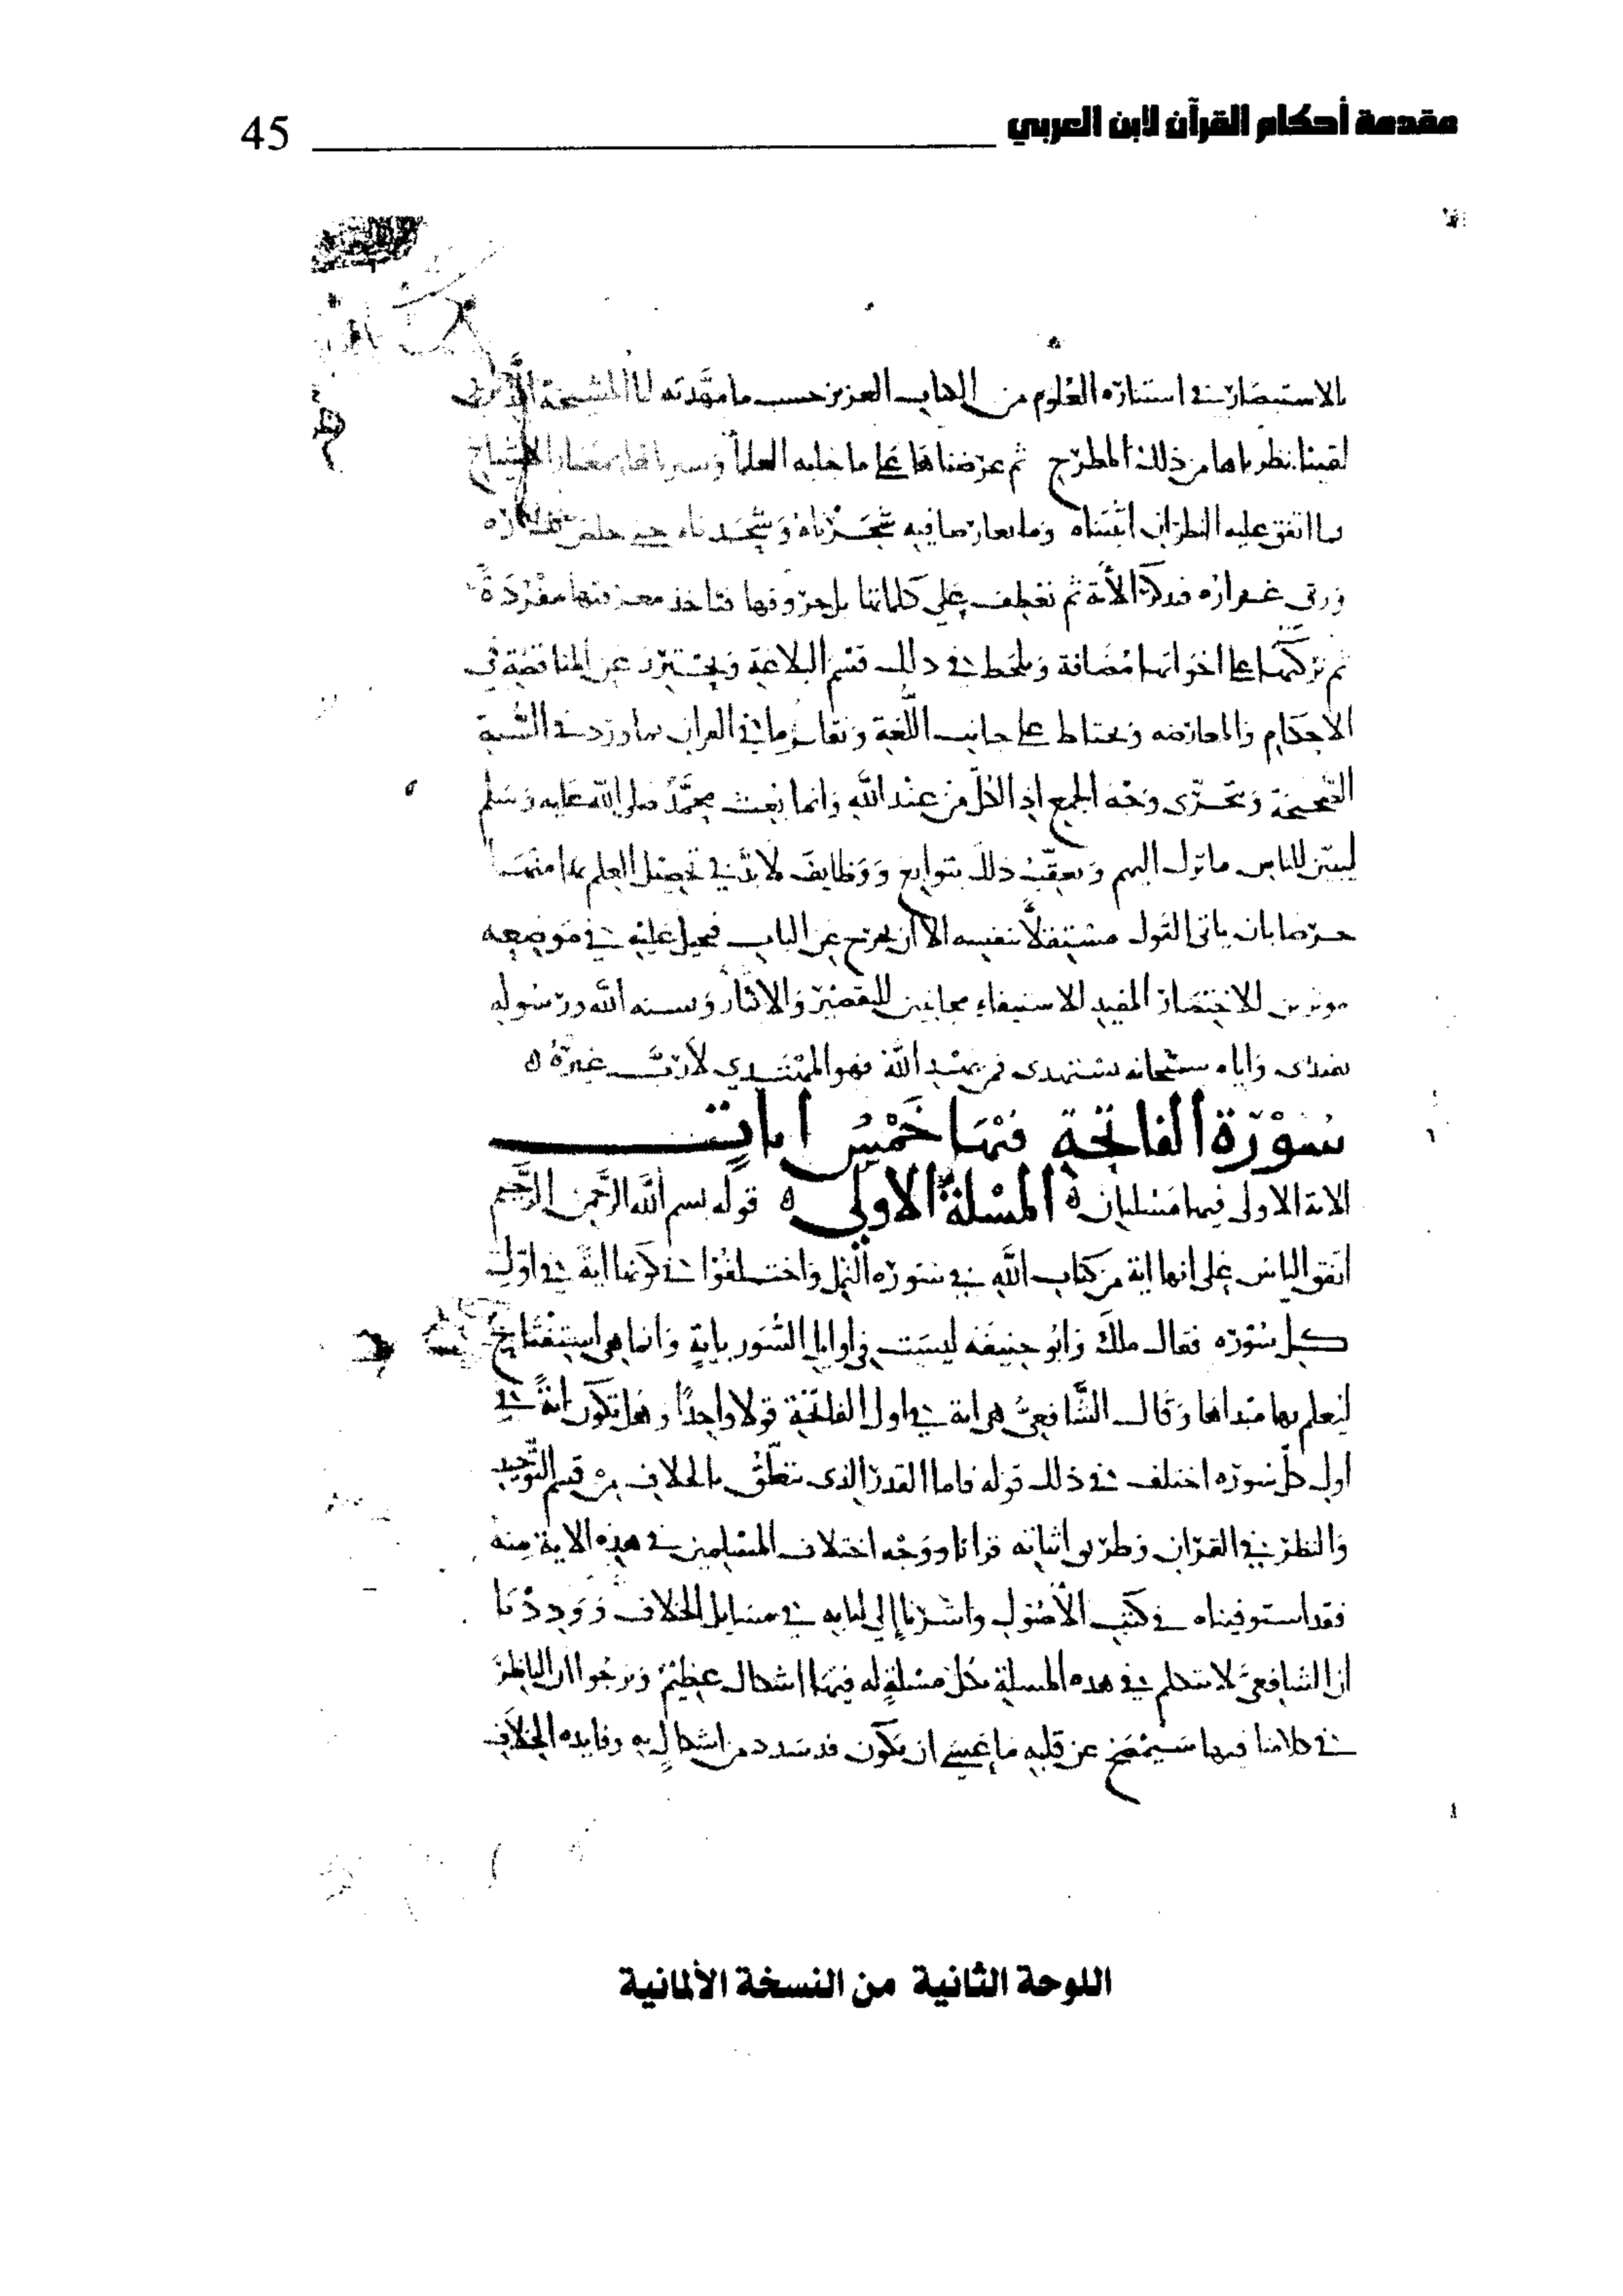 مقدمة أحكام القرآن لابن العربي 45
بالاستبصار في استنارة العلوم من الكتاب العزيز حسب ما مهدته لنا المشيخة الذين
لقينا نظرناها من ذلك المطرح ثم عرضناها على ما جلبه العلما وسبرناها بمعيار الاشياخ
فما اتفق عليه النظر اثبتناه وما تعارض فيه شجرناه وشحدناه حتى خلص نضاره
وورق عراره فنذكر الآية ثم نعطف على كلماتها بل حروفها فناخذ معرفتها مفردة
ثم نركبها على اخواتها مضافة ونلحظ في ذلك قسم البلاغة ونحترز عن المناقضة في
الاحكام والمعارضة ونحتاط على جانب اللغة ونقابل ما في القران بما ورد في السنة
الصحيحة ونتحرى وجه الجمع اذ الكل من عند الله وانما بعث محمد صلى الله عليه وسلم
ليبين للناس ما نزل اليهم ونعقب ذلك بتوابع ووظايف لا بد في تحصيل العلم بها منها
حرصا بان ياتي القول مستقلا بنفسه الا ان يخرج عن الباب فنحيل عليه في موضعه
موثرين للاختصار المفيد للاستيفاء مجانبين للتقصير والاكثار وبسنة الله ورسوله
نهتدى واياه سبحانه نستهدى فمن يهد الله فهو المهتدي لا رب غيره ه
سورة الفاتحة فيها خمس ايات
الاية الاولى فيها مسلتان ه المسلة الاولى ه قوله بسم الله الرحمن الرحيم
اتفق الناس على انها اية من كتاب الله في سورة النمل واختلفوا في كونها اية في اول
كل سورة فقال ملك وابو حنيفة ليست في اوايل السور باية وانما هي استفتاح
ليعلم بها مبداها وقال الشافعي هي اية في اول الفاتحة قولا واحدا وهل تكون اية في
اول كل سورة اختلف في ذلك قوله فاما القدر الذى يتعلق بالخلاف من قسم التوحيد
والنظر في القران وطريق اثباته قرانا ووجه اختلاف المسلمين في هذه الاية منه
فقد استوفيناه في كتب الاصول واشرنا إلى بيانه في مسايل الخلاف ووددنا
ان الشافعي لا يتكلم في هذه المسلة فكل مسلة له فيها اشكال عظيم ونرجوا ان الناظر
في كلامنا فيها سيمصح عن قلبه ما عسى ان يكون قد سدد من اشكال به وفايدة الخلاف
اللوحة الثانية من النسخة الألمانية